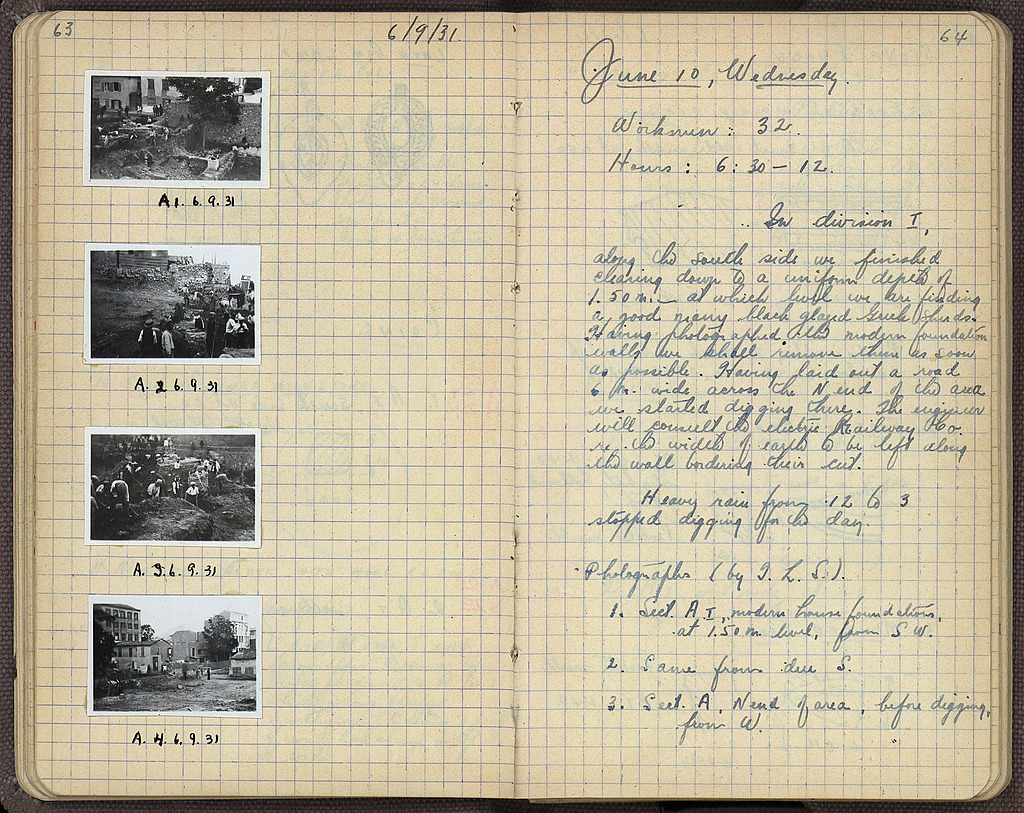 63
6/9/31
A1. 6. 9. 31
A. 2 6. 9. 31
A. 3. 6. 9. 31
A. 4. 6. 9. 31
64
June 10, Wednesday.
Workmen : 32.
Hours : 6 : 30 – 12.
In division I,
along the south side we finished
clearing down to a uniform depth of
1.50 m. – at which level we are finding
a good many black glazed Greek sherds.
Having photographed the modern foundation
walls we shall remove them as soon
as possible. Having laid out a road
6 m. wide across the N end of the area
we started digging there. The engineer
will consult the electric Railway Co.
re. the width of earth to be left along
the wall bordering their cut.
Heavy rain from 12 to 3
stopped digging for the day.
Photographs (by T. L. S.).
1. Sect. A, I, modern house foundations,
at 1.50 m level, from S W.
2. Same from due S.
3. Sect. A, N end of area, before digging,
from W.